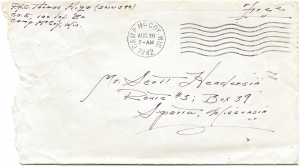 Pfc. Thomas
Co. E, 100 Inf. Bn.
Camp McCoy, Wis.
CAMP MCCOY, WIS.
AUG 28
7-AM
1942
Free
Mr. Scott Henderson
Route #3; Box 39
Sparta, Wisconsin